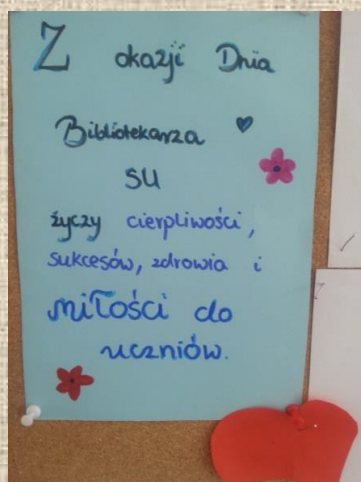 Z okazji Dnia
Bibliotekarza
SU
życzy cierpliwości,
sukcesów, zdrowia i
miłości do
uczniów.